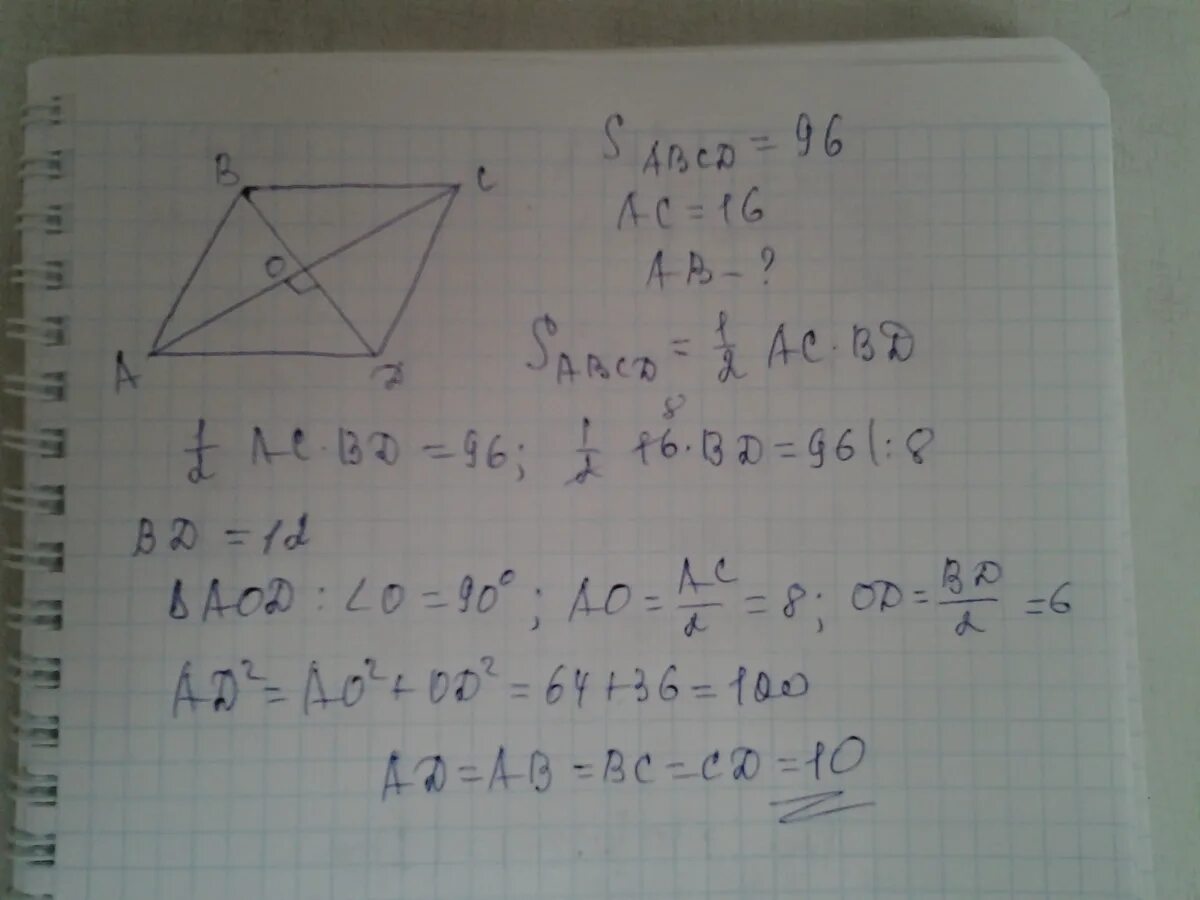 B C
O
A D
S ABCD = 96
AC = 16
AB - ?
S ABCD = 1/2 AC · BD
1/2 AC · BD = 96; 1/2 16 · BD = 96 |: 8
8
BD = 12
ΔAOD : ∠O = 90°; AO = AC/2 = 8; OD = BD/2 = 6
AD² = AO² + OD² = 64 + 36 = 100
AD = AB = BC = CD = 10